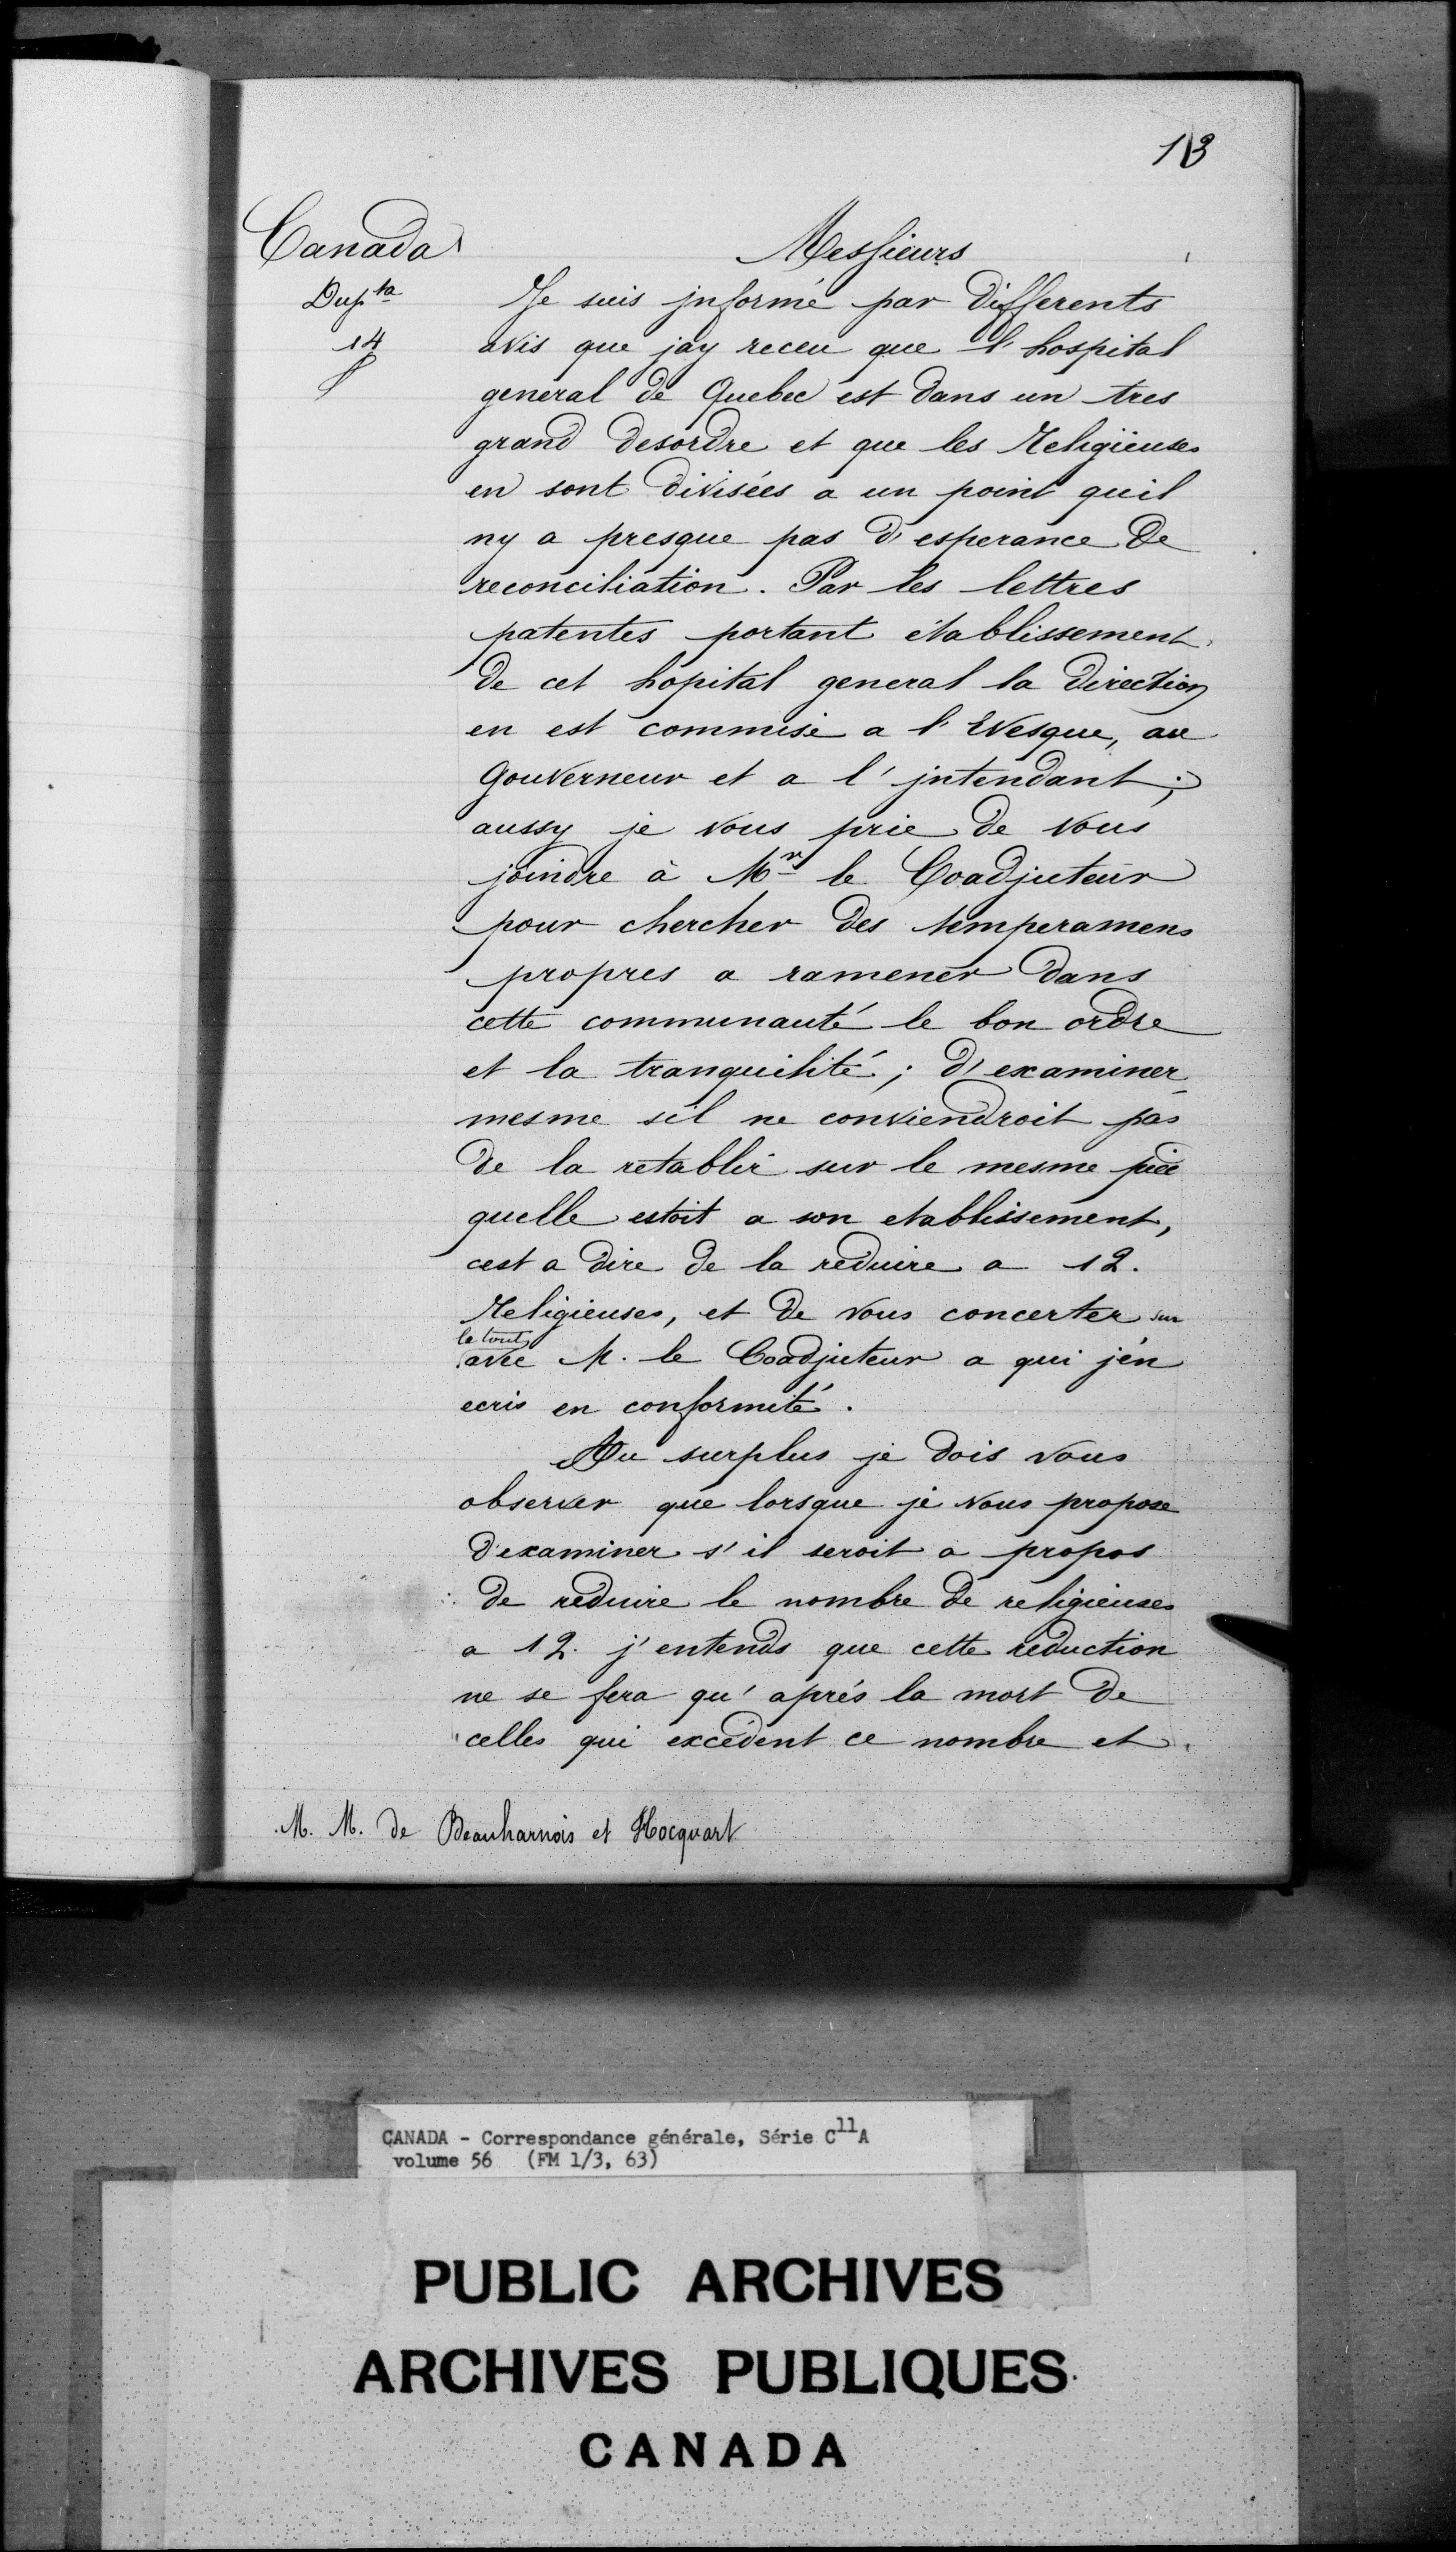 13
Canada
Dupta
14
Messieurs
Je suis jnformé par differents
avis que jay receu que l'hospital
general de Quebec est dans un tres
grand desordre et que les Religieuses
en sont divisées a un point quil
ny a presque pas d'esperance de
reconciliation. Par les lettres
patentes portant établissement
de cet hopital general la direction
en est commise a l'Evesque, au
Gouverneur et a l'jntendant;
aussy je vous prie de vous
joindre à Mr le Coadjuteur
pour chercher des temperamens
propres a ramener dans
cette communauté le bon ordre
et la tranquilité; d'examiner
mesme sil ne conviendroit pas
de la retablir sur le mesme pied
quelle estoit a son etablissement,
cest a dire de la reduire a 12.
Religieuses, et de vous concerter sur
le tout
avec M. le Coadjuteur a qui j'en
ecris en conformité.
Au surplus je dois vous
observer que lorsque je vous propose
d'examiner s'il seroit a propos
de reduire le nombre de religieuses
a 12. j'entends que cette reduction
ne se fera qu'aprés la mort de
celles qui excédent ce nombre et
M. M. de Beauharnois et Hocquart
CANADA - Correspondance générale, Série C11A
volume 56 (FM 1/3, 63)
PUBLIC ARCHIVES
ARCHIVES PUBLIQUES
CANADA